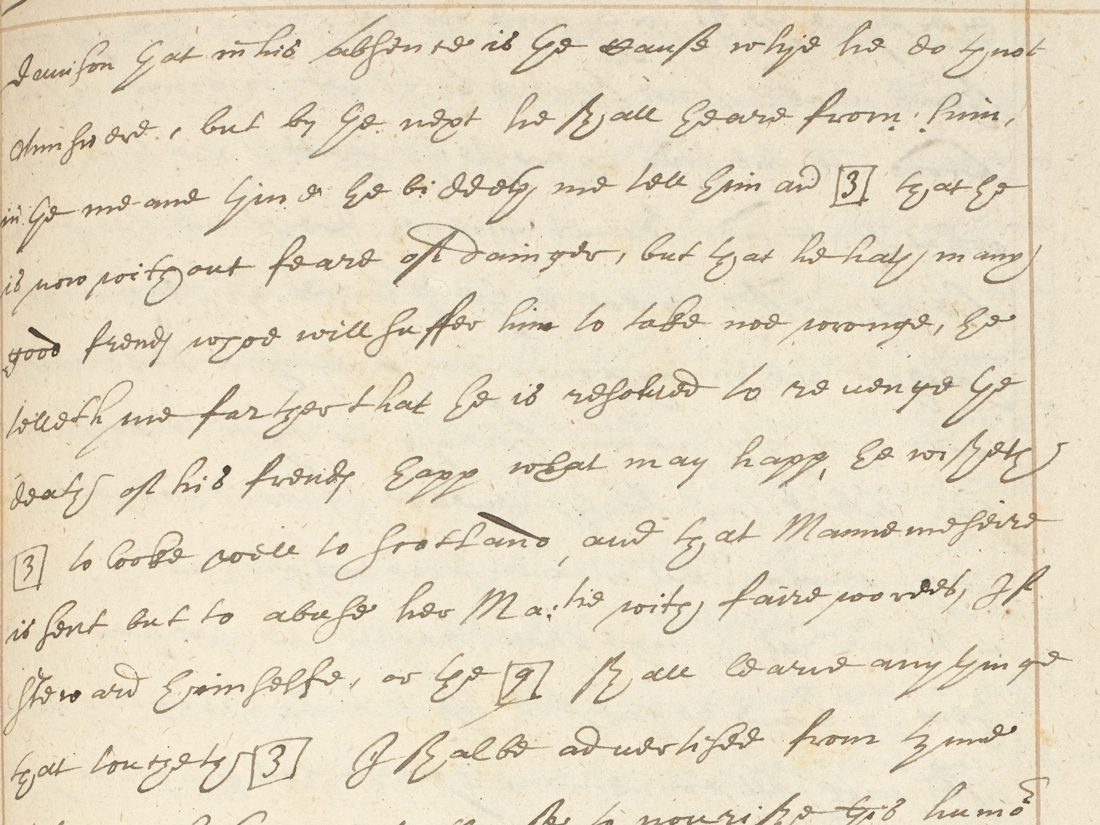 davison that in his absence is the cause whye he doth not
Aunswere, but by the next he shall heare from him,
in the meane tyme he biddeth me tell him and [3] that he
is now without feare of dainger, but that he hath many
good frends whoe will suffer him to take noe wronge, he
telleth me farther that he is resolved to revenge the
death of his frends happ what may happ, he wisheth
[3] to looke well to Scotland, and that Mannemeseire
is sent but to abuse her Ma:tie with faire wordes, If
steward himselfe, or the [9] shall learne any thinge
that toucheth [3] I shalbe advertised from tyme
to nourishe this humor